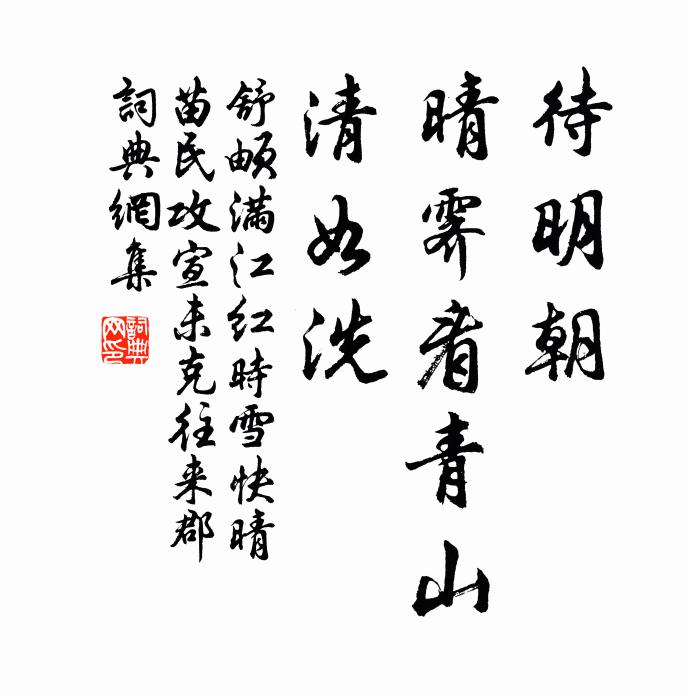 待明朝
晴霽看青山
清如洗
舒頔滿江紅時雪快晴
苗民攻宣未克往来郡
詞典網集
詞典
网印